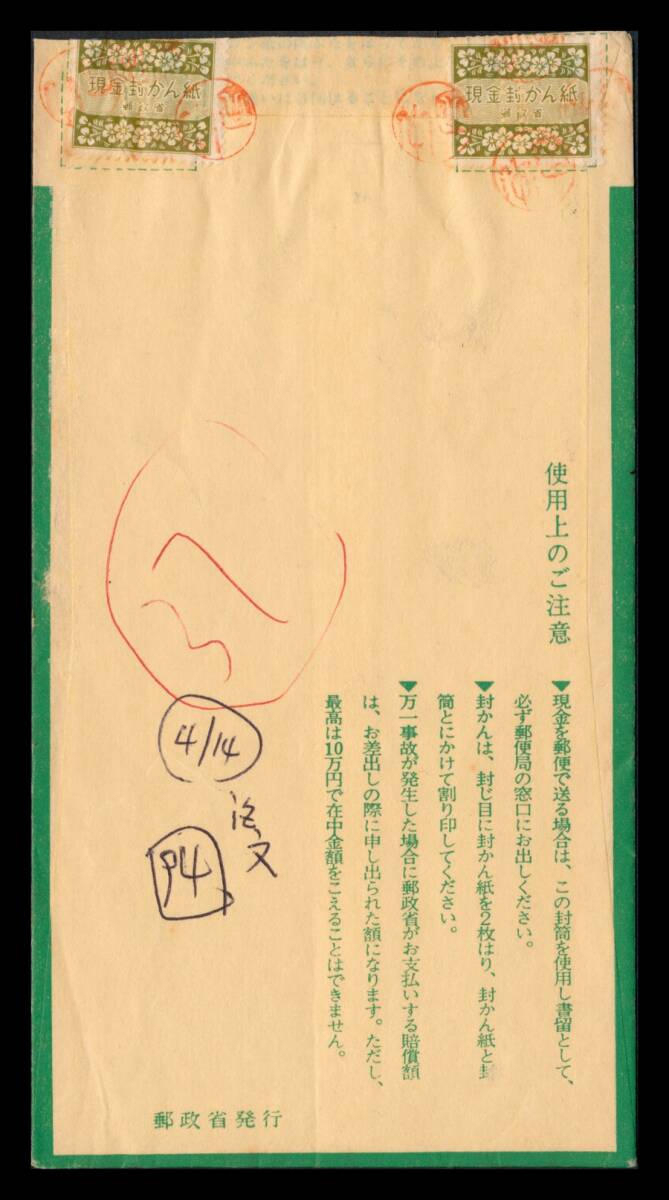 現金封かん紙
郵政省
現金封かん紙
郵政省
使用上のご注意
▼現金を郵便で送る場合は、この封筒を使用し書留として、
必ず郵便局の窓口にお出しください。
▼封かんは、封じ目に封かん紙を2枚はり、封かん紙と封
筒とにかけて割り印してください。
▼万一事故が発生した場合に郵政省がお支払いする賠償額
は、お差出しの際に申し出られた額になります。ただし、
最高は10万円で在中金額をこえることはできません。
4/14
P4
郵政省発行